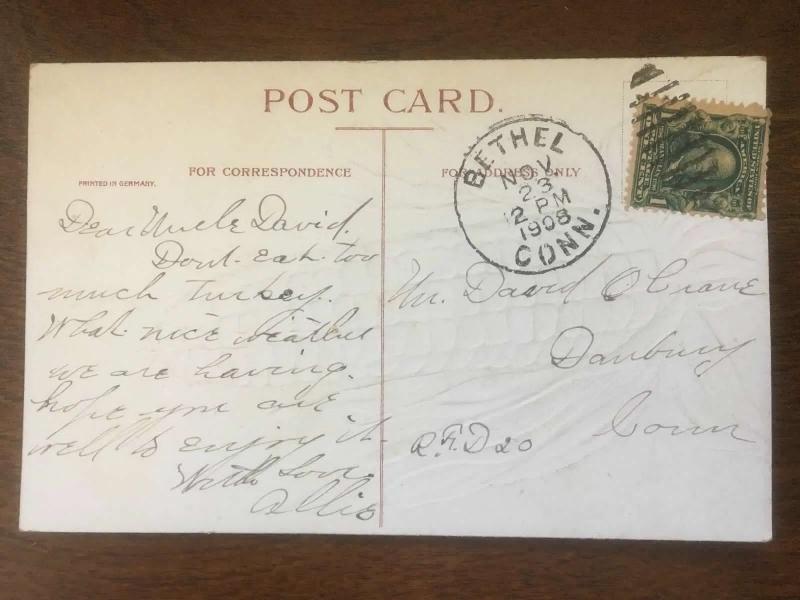 POST CARD.
FOR CORRESPONDENCE
FOR ADDRESS ONLY
PRINTED IN GERMANY.
BETHEL
NOV
23
12 PM
1908
CONN.
Dear Uncle David.
Dont eat too
much turkey.
What nice weather
we are having.
hope you are
well to enjoy it.
With Love
Allis
Mr. David O Crane
Danbury
Conn
R.F.D 20